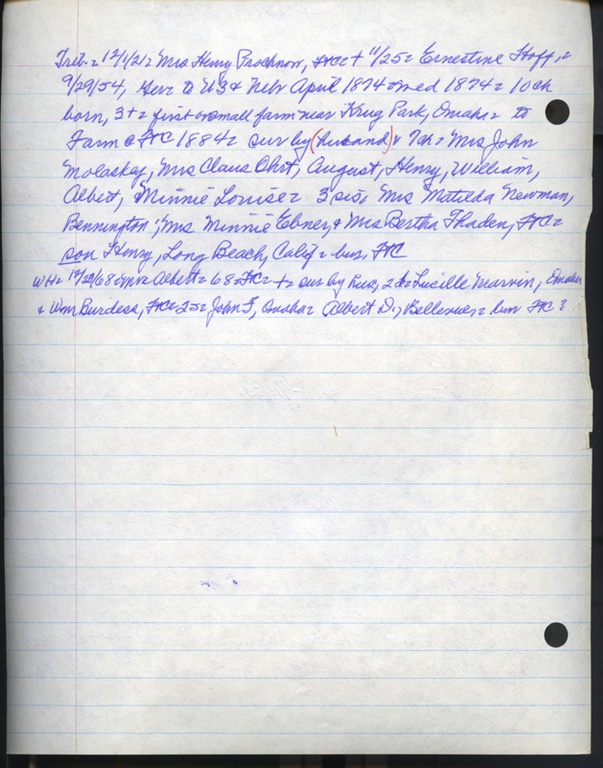 Trib = 12/1/21 = Mrs Henry Paschnow, FtC = + 11/25 = Ernestine Hoff, =
9/29/54, Ger to US & Nebr April 1874 = med 1874 = 10 ch
born, 3 + = first on small farm near Krug Park, Omaha = to
Farm @ FtC 1884 = sur by (husband) & 7 ch = Mrs John
Molaskey, Mrs Claus Ohrt, August, Henry, William,
Albert, & Minnie Louise = 3 sis = Mrs Matilda Newman,
Bennington; Mrs Minnie Ebner, & Mrs Bertha Thaden, FtC =
son Henry, Long Beach, Calif = bur, FtC
WH = 12/29/68 = Mrs Albert = 68 = FtC = + = sur by hus, 2 d = Lucille Marvin, Omaha
& Wm Burdess, FtC = 2 s = John F, Omaha = Albert D, Bellevue, = bur FtC